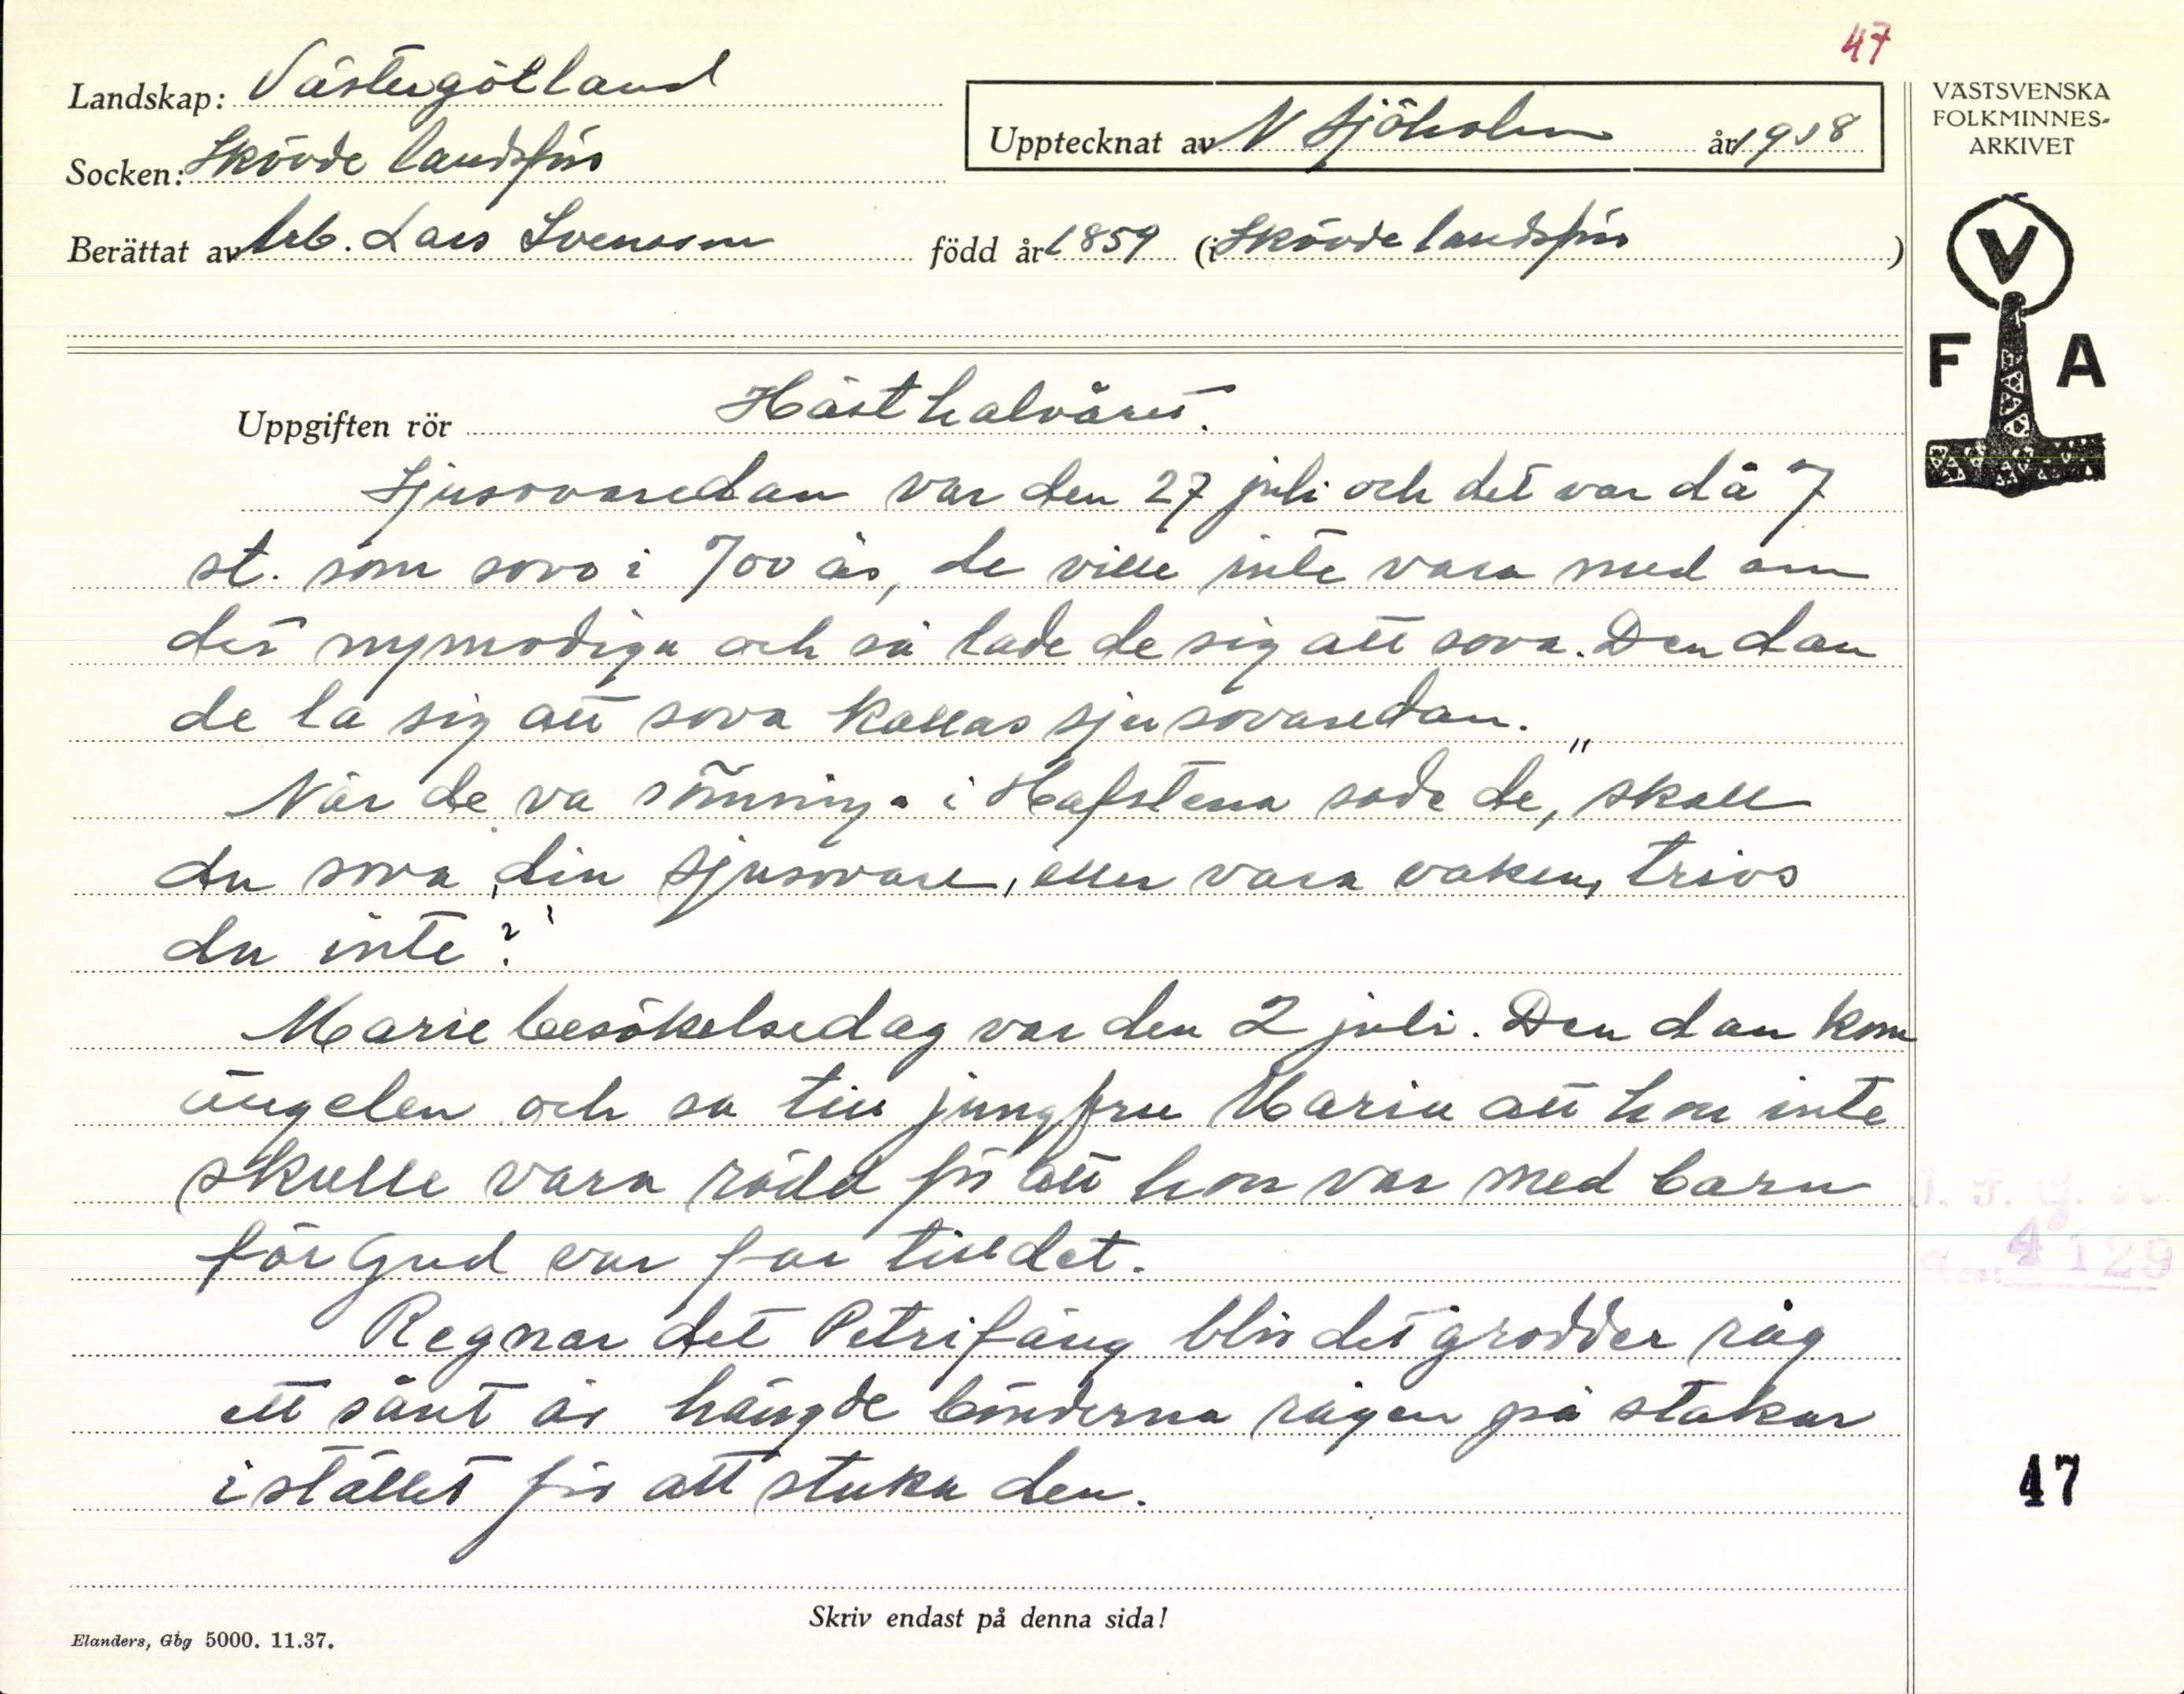 47
Landskap: Västergötland
Socken: Skövde landsförs
Upptecknat av N Sjöholm år 1938
Berättat av Arb. Lars Svensson född år 1859 (i Skövde landsförs)
VÄSTSVENSKA
FOLKMINNES-
ARKIVET
V
F A
Uppgiften rör Höst halvåret.
Sjusovaredan var den 27 juli och det var då 7
st. som sovo i 700 år, de ville inte vara med om
det nymodiga och så lade de sig att sova. Den dan
de la sig att sova kallas sjusovaredan.
När de va sömniga i Hafstena sade de, "skall
du sova, din sjusovare, eller vara vaken, trivs
du inte?"
Marie besökelsedag var den 2 juli. Den dan kom
ängelen och sa till jungfru Maria att hon inte
skulle vara rädd för att hon var med barn
för Gud var far till det.
Regnar det Petrifäng blir det grodder råg
ett sånt år hängde bönderna rågen på stakar
i stället för att stuka den.
4129
47
Skriv endast på denna sida!
Elanders, Gbg 5000. 11.37.